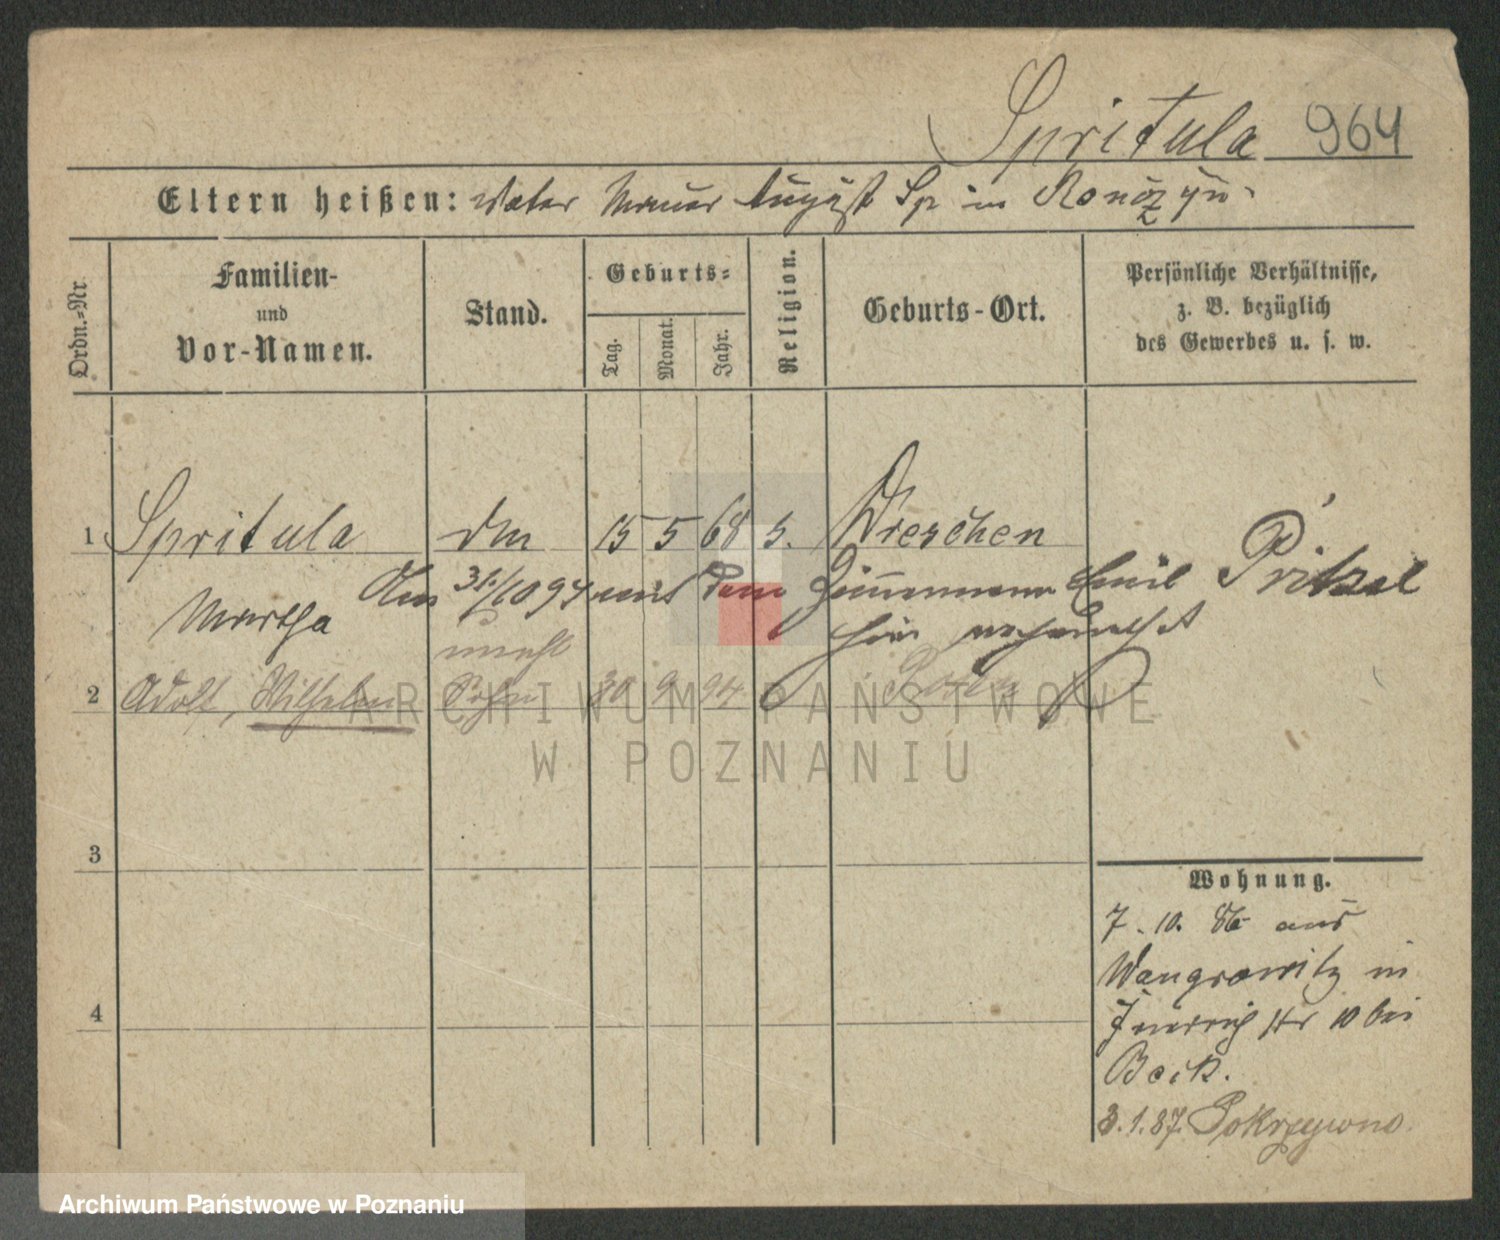 Spritula 964
Eltern heißen: Vater Maurer August Sp in
Ordn.=Nr.
Familien-
und
Vor-Namen.
Stand.
Geburts=
Tag.
Monat.
Jahr.
Religion.
Geburts-Ort.
Persönliche Verhältnisse,
z. B. bezüglich
des Gewerbes u. s. w.
1 Spritula 15 5 68 Wreschen
Martha
Am 31/10 94 mit dem Zimmermann Emil Pritzel
hier
unehl
2 Adolf, Wilhelm Sohn 30 9 94 Posen
3
4
Wohnung.
7. 10. 86 aus
Wangrowitz in
10 bei
Bock.
3.1.87. Pokrzywno
ARCHIWUM PAŃSTWOWE
W POZNANIU
Archiwum Państwowe w Poznaniu